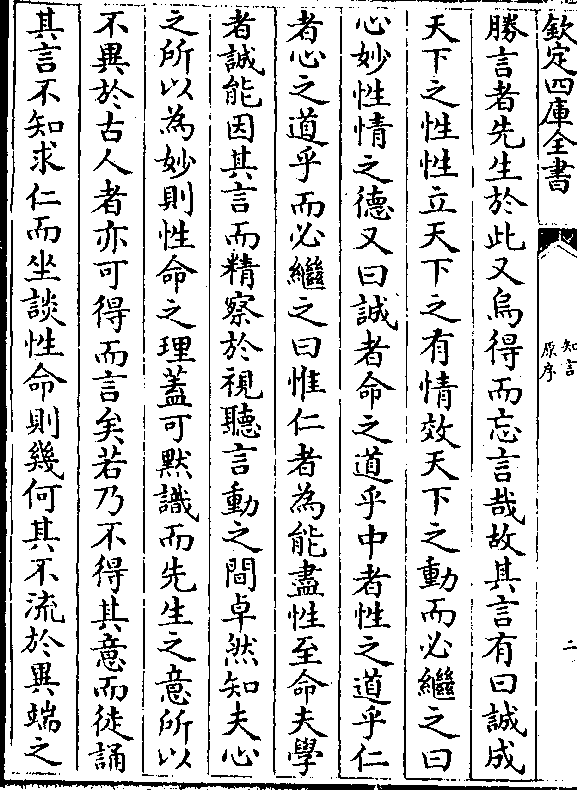 欽定四庫全書
知言
原序
二
勝言者先生於此又烏得而忘言哉故其言有曰誠成
天下之性性立天下之有情效天下之動而必繼之曰
心妙性情之德又曰誠者命之道乎中者性之道乎仁
者心之道乎而必繼之曰惟仁者為能盡性至命夫學
者誠能因其言而精察於視聽言動之間卓然知夫心
之所以為妙則性命之理蓋可默識而先生之意所以
不異於古人者亦可得而言矣若乃不得其意而徒誦
其言不知求仁而坐談性命則幾何其不流於異端之